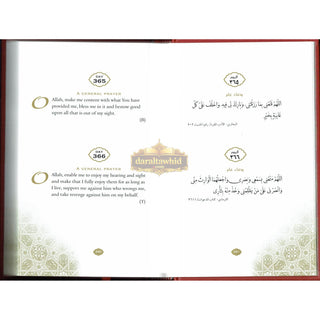 DAY
365
A GENERAL PRAYER
O Allah, make me content with what You have
provided me, bless me in it and bestow good
upon all that is out of my sight.
(B)
DAY
366
A GENERAL PRAYER
O Allah, enable me to enjoy hearing and sight
and make that I fully enjoy them for as long as
I live, support me against him who wrongs me,
and take revenge against him on my behalf.
(T)
daraltawhid
اليوم
٣٦٥
دعاء عام
اللَّهُمَّ قَنِّعْنِي بِمَا رَزَقْتَنِي، وَبَارِكْ لِي فِيهِ، وَاخْلُفْ عَلَيَّ كُلَّ
غَائِبَةٍ بِخَيْرٍ.
اليوم
٣٦٦
دعاء عام
اللَّهُمَّ مَتِّعْنِي بِسَمْعِي وَبَصَرِي، وَاجْعَلْهُمَا الْوَارِثَ مِنِّي،
وَانْصُرْنِي عَلَى مَنْ يَظْلِمُنِي، وَخُذْ مِنْهُ بِثَأْرِي.